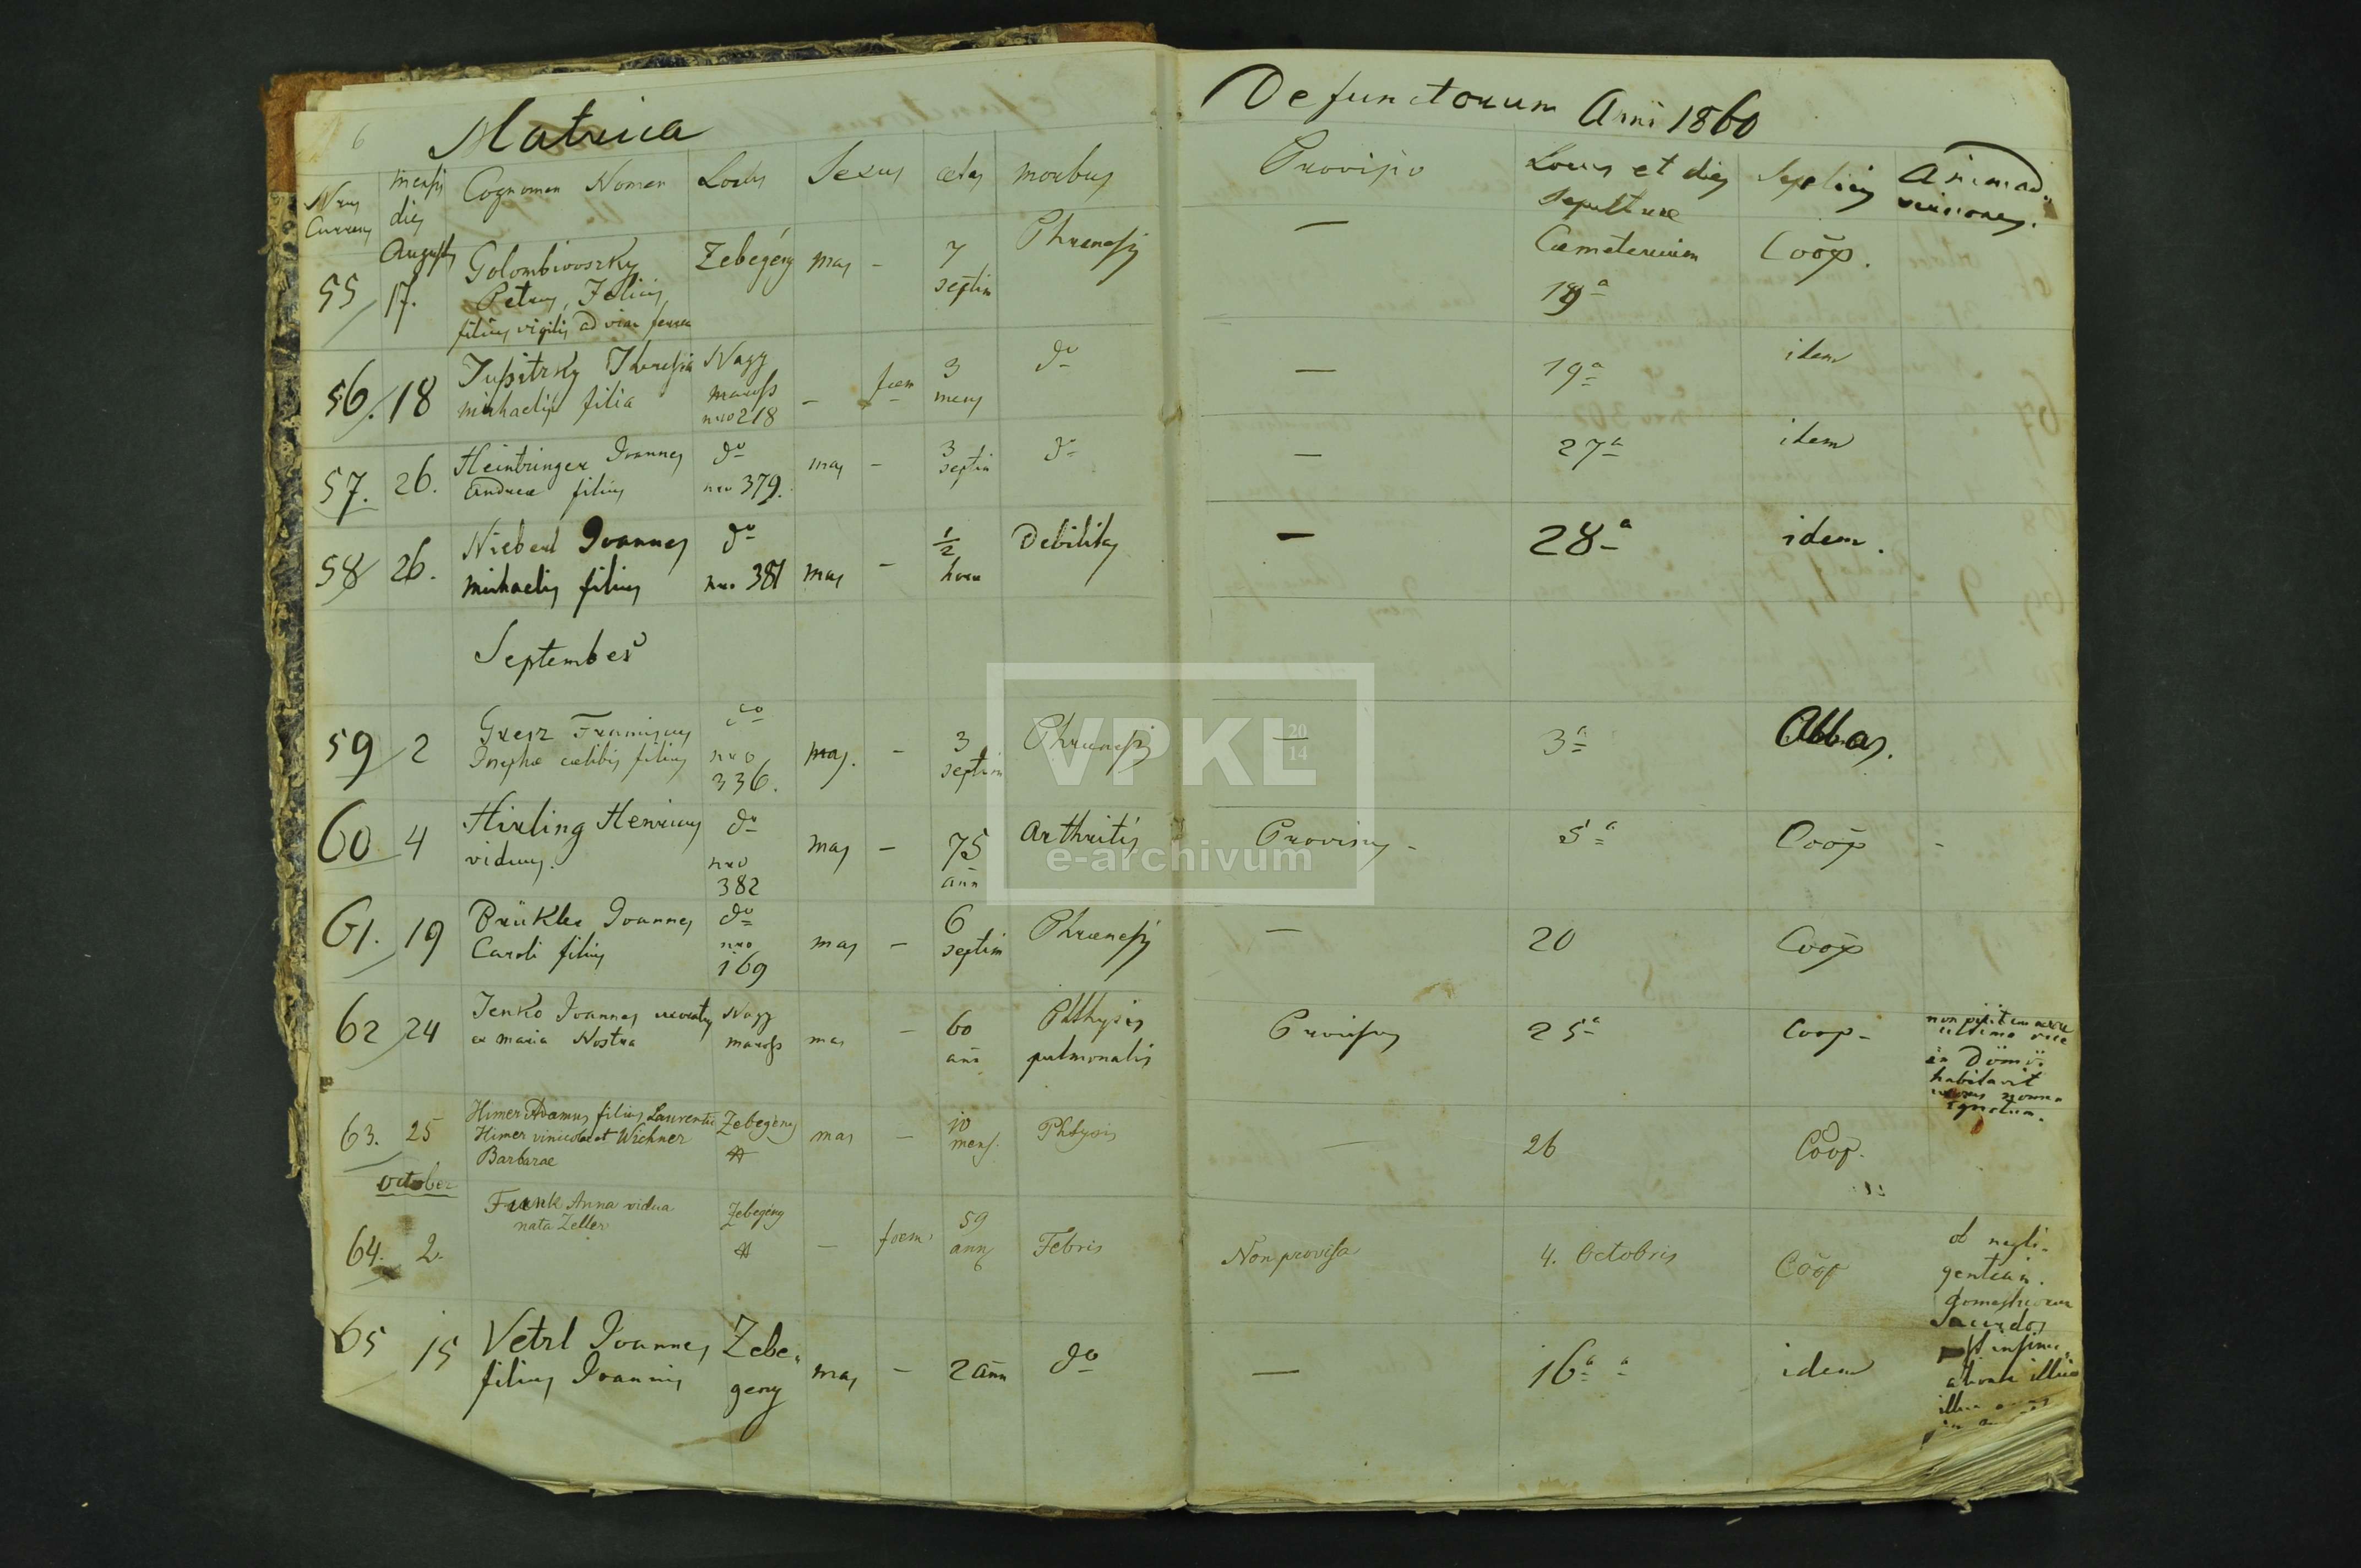 6
Matrica
Defunctorum Anni 1860
Nrus Currens
mensis dies
Cognomen Nomen
Locus
Sexus
ætas
morbus
Provisio
Locus et dies sepulturæ
Sepeliens
Animadversiones.
August
55 17. Golombiovszky Zebegény mas — 7 Phrenesis — Cæmeterium Coop.
Petrus, Felicis septim 19a
filius vigilis ad viam ferream
56. 18 Theresia Nagy — foem 3 do — 19a idem
michaelis filia maross mens
nro 218
57. 26. Heintzinger Joannes do mas — 3 do — 27a idem
Andreæ filius nro 379. septim
58 26. Nieberl Joannes do mas — 1/2 Debilitas — 28a idem.
michaelis filius nro 381 hora
September
59 2 Gresz Franciscus do mas. — 3 Phrænesis — 3a Abbas.
Josephæ cælibis filius nro septim
336.
60 4 Hirling Henricus do mas — 75 Arthritis Provisus - 5a Coop -
viduus. nro ann
382
61. 19 Brükler Joannes do mas — 6 Phrænesis — 20 Coop
Caroli filius nro septim
169
62 24 Jenko Joannes Nagy mas — 60 Phthysis Provisus 25a Coop -
ex maria Nostra maross ann pulmonalis
in Dömös
habitavit
ignotum.
63. 25 Himer Adamus filius Laurentii Zebegény mas — 10 Phtysis — 26 Coop.
Himer vinicolæ et Wichner mens.
Barbarae
October
64. 2. Frank Anna vidua Zebegény — foem. 59 Febris Non provisa 4. Octobris Coop
nata Zeller ann
ob negli-
gentiam.
domesticorum
Sacerdos
65 15 Vetzl Joannes Zebe- mas — 2 ann do — 16a idem
filius Joannis geny
VPKL
20
14
e-archivum